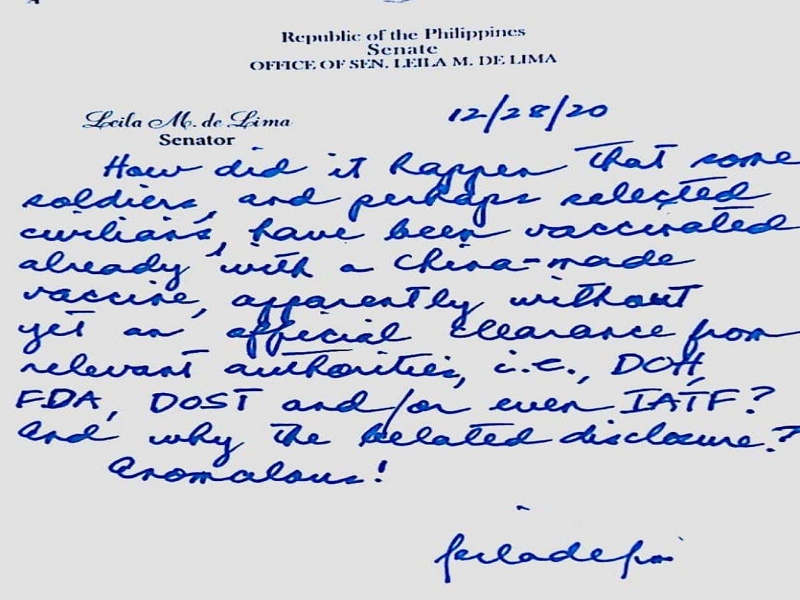 Republic of the Philippines
Senate
OFFICE OF SEN. LEILA M. DE LIMA
Leila M. de Lima
Senator
12/28/20
How did it happen that some
soldiers, and perhaps selected
civilians, have been vaccinated
already with a China-made
vaccine, apparently without
yet an official clearance from
relevant authorities, i.e., DOH,
FDA, DOST and/or even IATF?
And why the belated disclosure?
Anomalous!